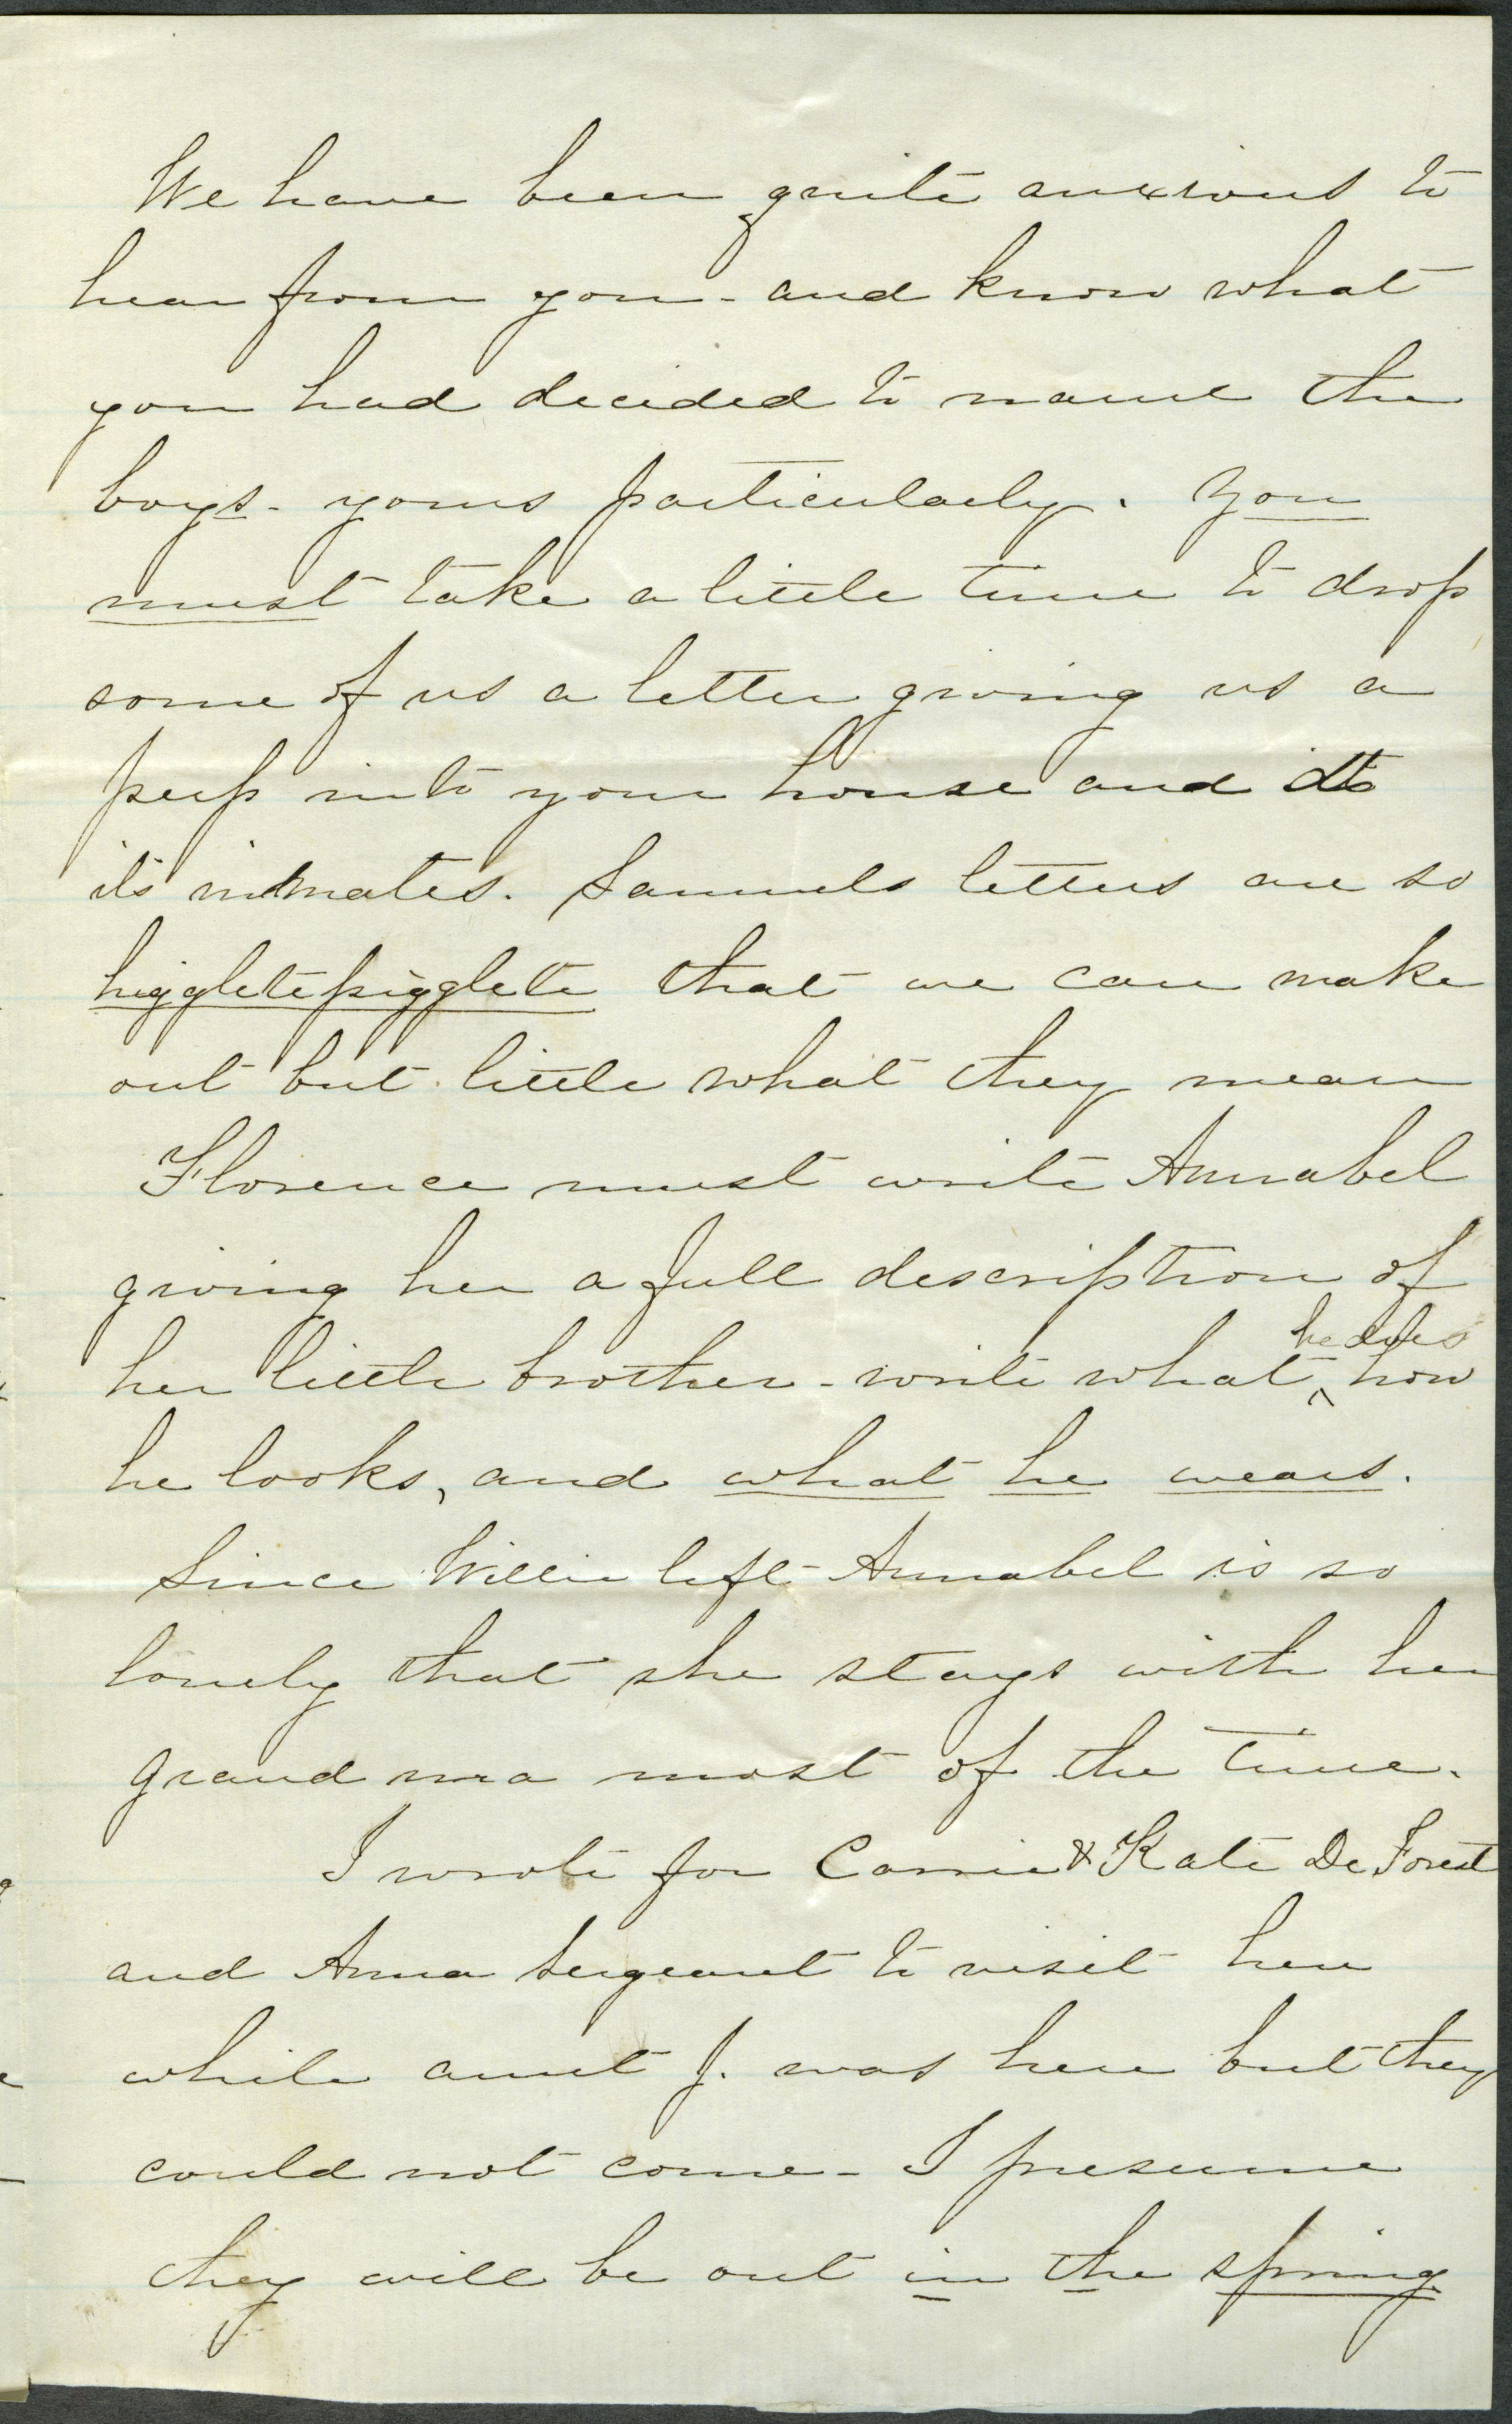 We have been quite anxious to
hear from you - and know what
you had decided to name the
boys - yours particularly. You
must take a little time to drop
some of us a letter giving us a
peep into your house and
its inmates. Samuels letters are so
higgletepigglete that we can make
out but little what they mean
Florence must write Annabel
giving her a full description of
her little brother - write what he does how
he looks, and what he wears.
Since Willie left Annabel is so
lonely that she stays with her
Grand ma most of the time.
I wrote for Carrie & Kate De Forest
and Anna Sergeant to visit here
while aunt J. was here but they
could not come - I presume
they will be out in the spring